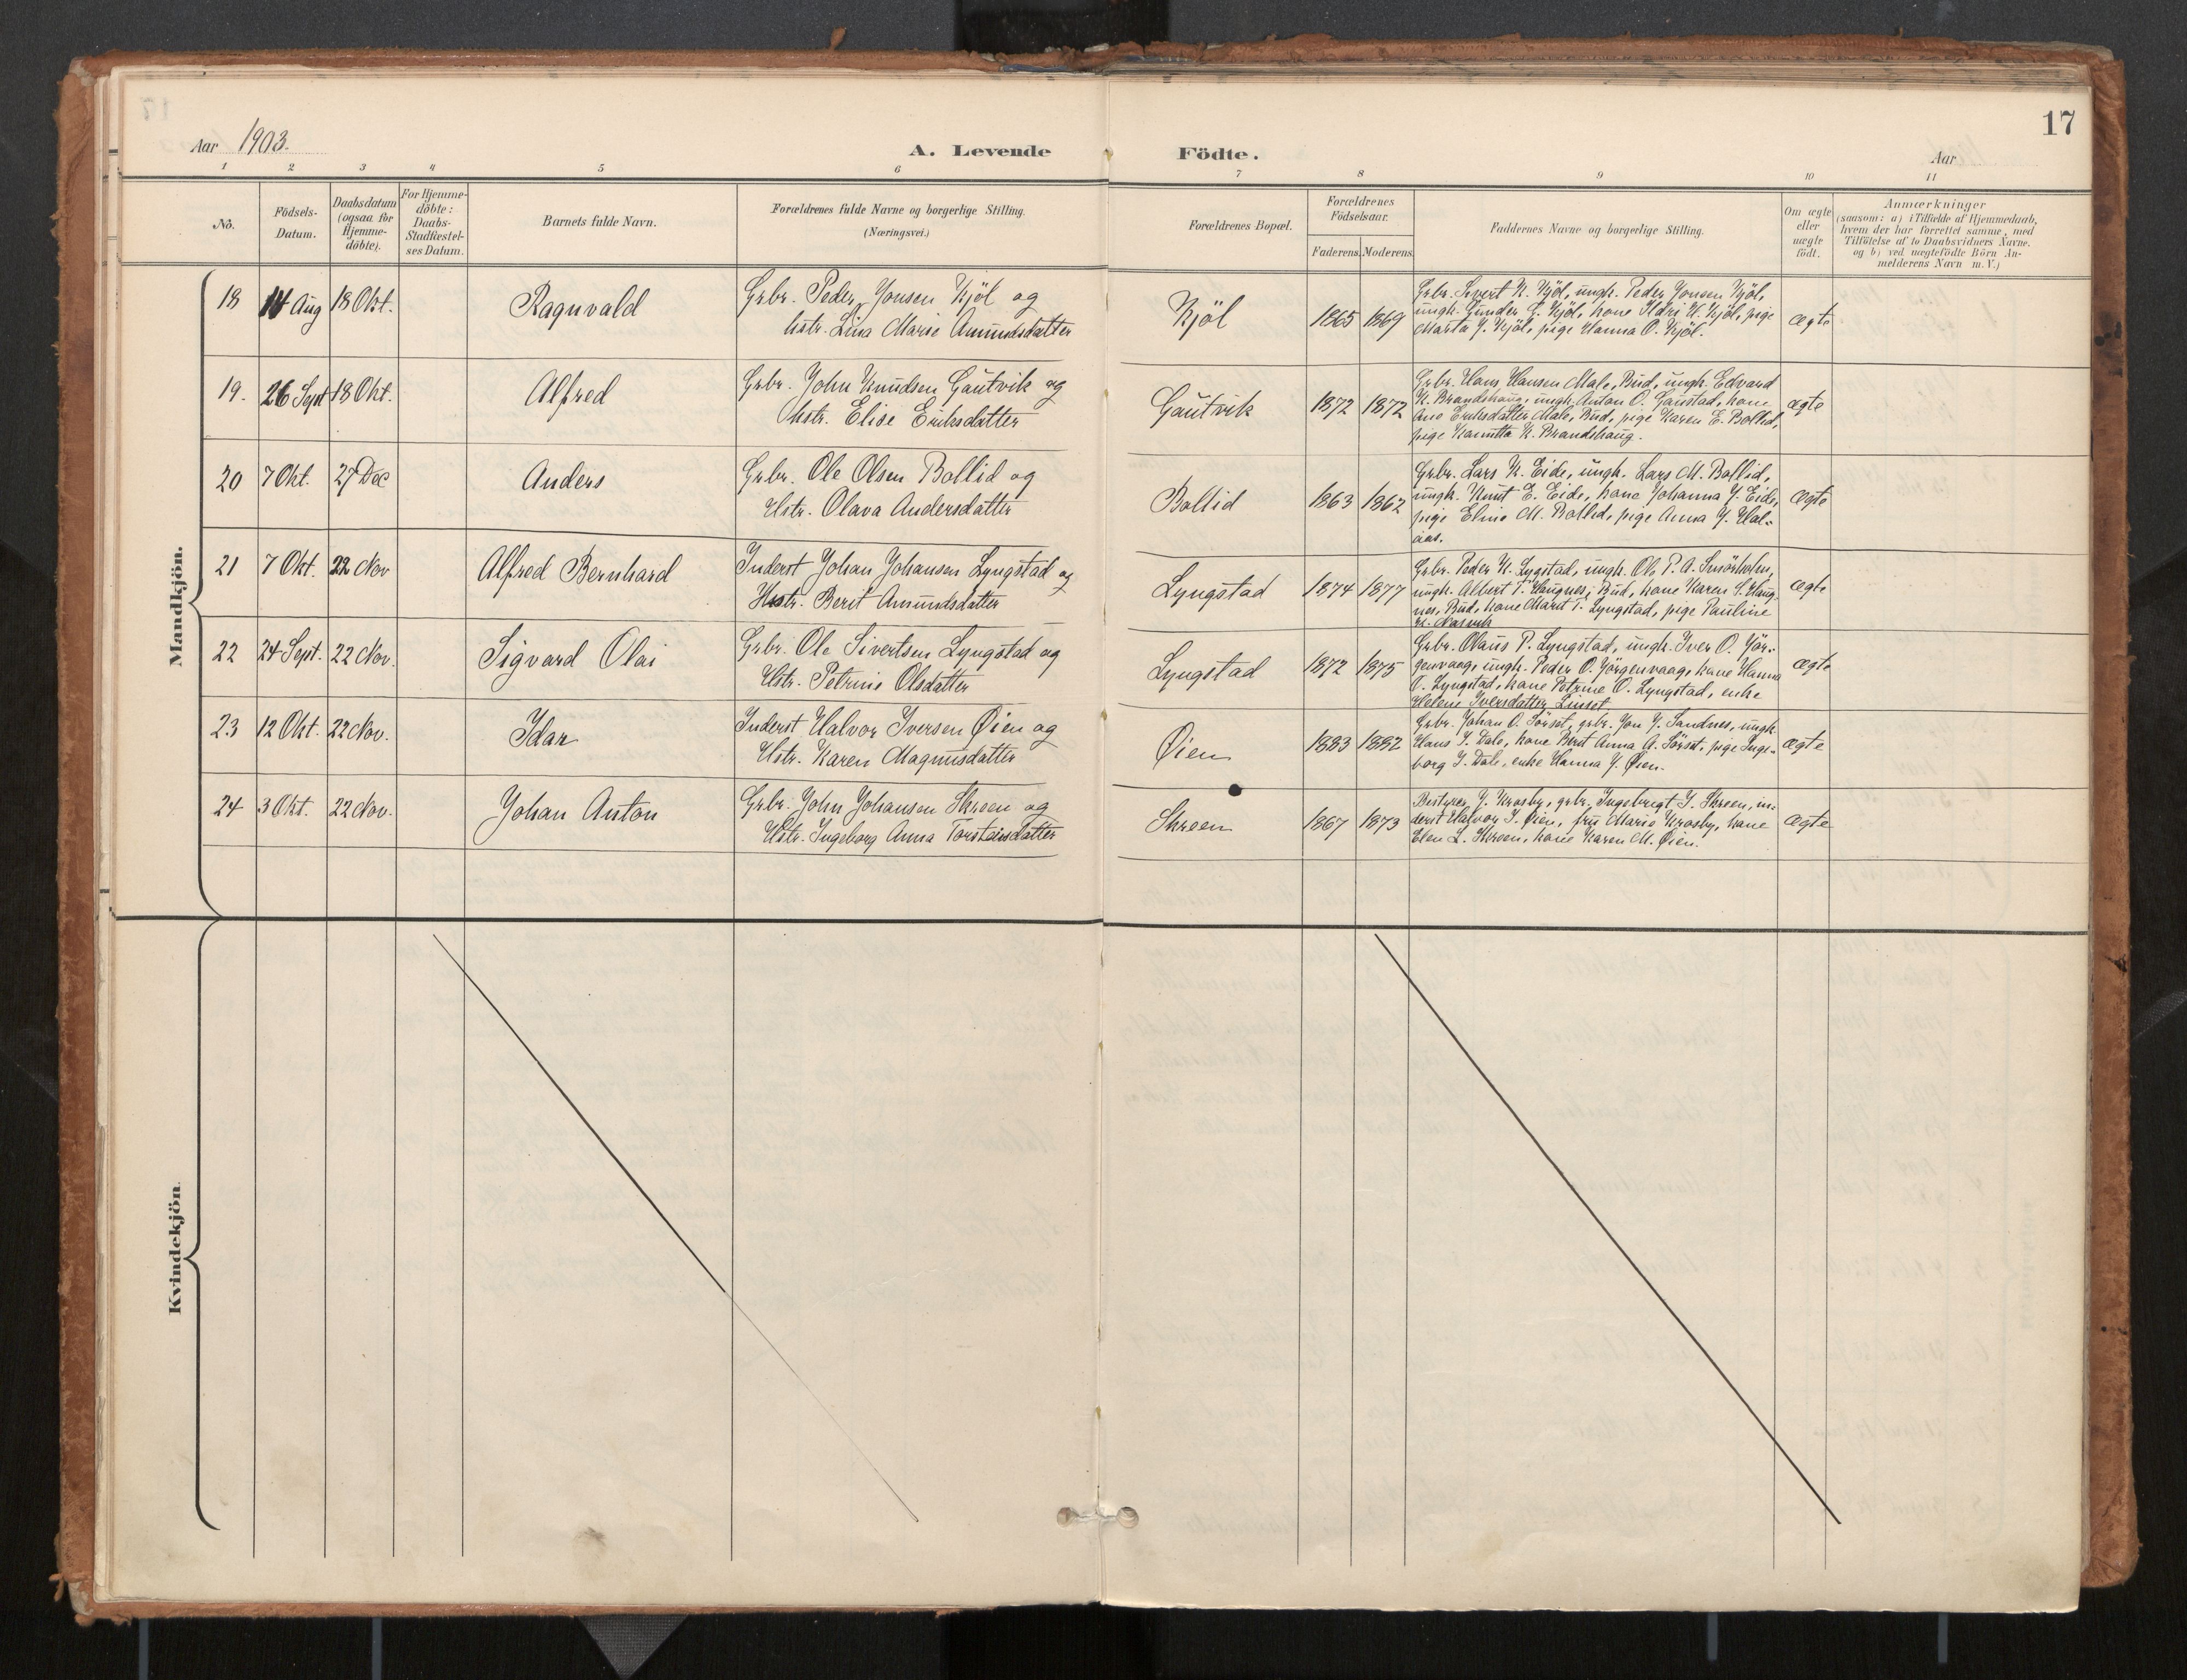 17
Aar 1903.
A. Levende Födte.
Aar
1 2 3 4 5 6 7 8 9 10 11
No.
Födsels-Datum.
Daabsdatum (ogsaa for Hjemme-döbte).
For Hjemme-döbte: Daabs-Stadfæstel-ses Datum.
Barnets fulde Navn.
Forældrenes fulde Navne og borgerlige Stilling.
(Næringsvei.)
Forældrenes Bopæl.
Forældrenes Födselsaar.
Faderens. Moderens.
Faddernes Navne og borgerlige Stilling.
Om ægte eller uægte födt.
Anmærkninger
(saasom: a) i Tilfælde af Hjemmedaab,
hvem der har forrettet samme, med
Tilföielse af to Daabsvidners Navne.
og b) ved uægtefödte Börn An-
melderens Navn m.V.)
Mandkjön.
18 14 Aug 18 Okt. Ragnvald
Grbr. Peder Jonsen Kjöl og
hstr. Lina Marie Amundsdatter
Kjöl 1865 1869
Grbr. Sivert K. Kjöl, ungk. Peder Jonsen Kjöl,
ungk. Gunder G. Kjöl, kone Kari K. Kjöl, pige
Marta J. Kjöl, pige Hanna O. Kjöl.
ægte
19. 26 Sept 18 Okt. Alfred
Grbr. John Knudsen Gautvik og
hstr. Elise Eriksdatter
Gautvik 1872 1872
Grbr. Hans Hansen Male, Bud, ungk. Edvard
K. Brandshaug, ungk. Anton O. Gaustad, kone
Ane Eriksdatter Male, Bud, pige Karen E. Bollid,
pige K. Brandshaug.
ægte
20 7 Okt. 27 Dec Anders
Grbr. Ole Olsen Bollid og
Hstr. Olava Andersdatter
Bollid 1863 1862
Grbr. Lars K. Eide, ungk. Lars M. Bollid,
ungk. Knut E. Eide, kone Johanna J. Eide,
pige Eline M. Bollid, pige Anna J. Hal-
aas.
ægte
21 7 Okt. 22 Nov Alfred Bernhard
Inderst Johan Johansen Lyngstad og
Hstr. Berit Amundsdatter
Lyngstad 1874 1877
Grbr. Peder K. Lygstad, ungk. Ole P. A. Smörholm,
ungk. Albert T. Haugnes, Bud, kone Karen S. Haug-
nes, Bud, kone Marit T. Lyngstad, pige Pauline
ægte
22 24 Sept. 22 Nov. Sigvard Olai
Grbr. Ole Sivertsen Lyngstad og
Hstr. Petrine Olsdatter
Lyngstad 1872 1875
Grbr. Olaus P. Lyngstad, ungk. Iver O. Jör-
genvaag, ungk. Peder O. Jörgenvaag, kone Hanna
O. Lyngstad, kone Petrine O. Lyngstad, enke
Helene Iversdatter Linset
ægte
23 12 Okt. 22 Nov. Idar
Inderst Halvor Iversen Øien og
Hstr. Karen Magnusdatter
Øien 1883 1882
Grbr. Johan O. Sörset, grbr. Jon J. Sandnes, ungk
Hans I. Dale, kone Berit Anna A. Sörset, pige Inge-
borg I. Dale, enke Hanna J. Øien.
ægte
24 3 Okt. 22 Nov. Johan Anton
Grbr. John Johansen Skreen og
Hstr. Ingeborg Anna Torsteinsdatter
Skreen 1867 1873
Bestyrer J. Krosby, grbr. Ingebrigt J. Skreen, in-
derst Halvor I. Øien, fru Marie Krosby, kone
Elen L. Skreen, kone Karen M. Øien.
ægte
Kvindekjön.